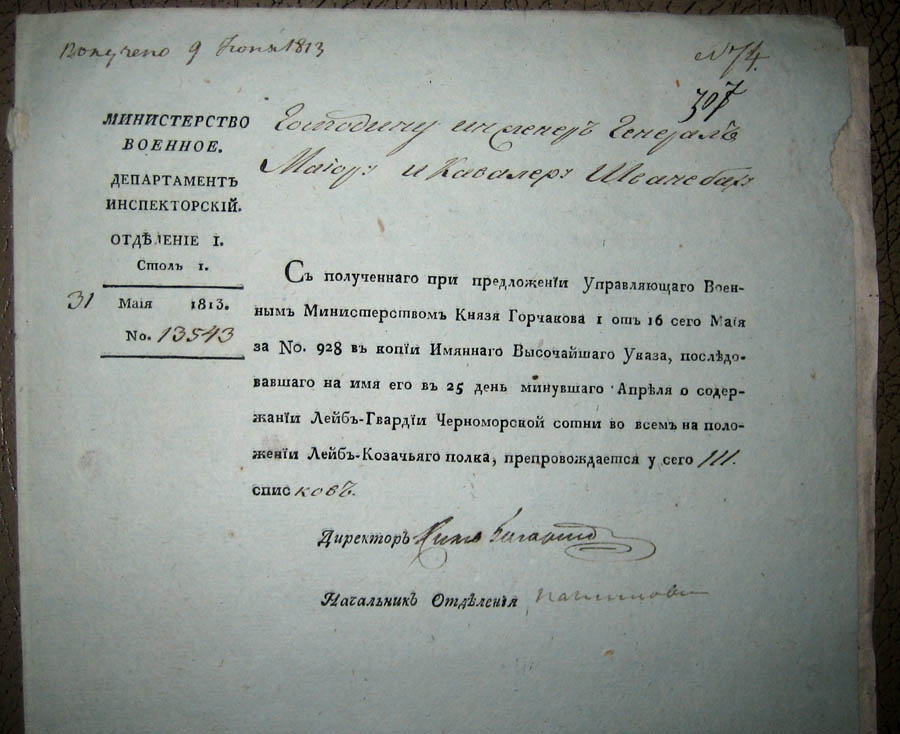 Получено 9 Июня 1813
№ 74.
307
МИНИСТЕРСТВО
ВОЕННОЕ.
ДЕПАРТАМЕНТЪ
ИНСПЕКТОРСКІЙ.
ОТДѢЛЕНІЕ I.
Столъ 1.
31 Маія 1813.
No. 13543
Господину инженеръ Генералъ
Маіору и Кавалеру Шванебаху
Съ полученнаго при предложеніи Управляющаго Воен-
нымъ Министерствомъ Князя Горчакова 1 отъ 16 сего Маія
за No. 928 въ копіи Имяннаго Высочайшаго Указа, послѣдо-
вавшаго на имя его въ 25 день минувшаго Апрѣля о содер-
жаніи Лейбъ-Гвардіи Черноморской сотни во всемъ на поло-
женіи Лейбъ-Козачьяго полка, препровождается у сего III.
списковъ.
Директоръ
Начальникъ Отдѣленія